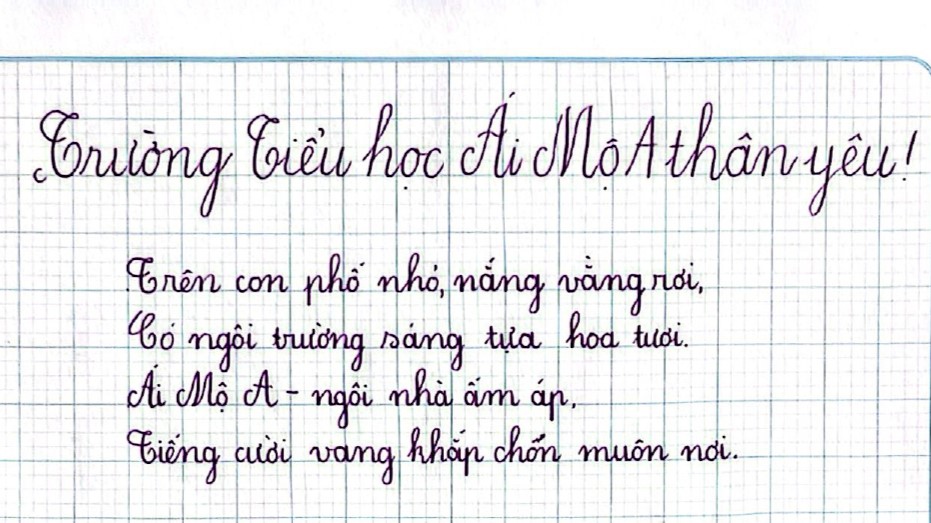 Trường Tiểu học Ái Mộ A thân yêu!
Trên con phố nhỏ, nắng vàng rơi,
Có ngôi trường sáng tựa hoa tươi.
Ái Mộ A - ngôi nhà ấm áp,
Tiếng cười vang khắp chốn muôn nơi.